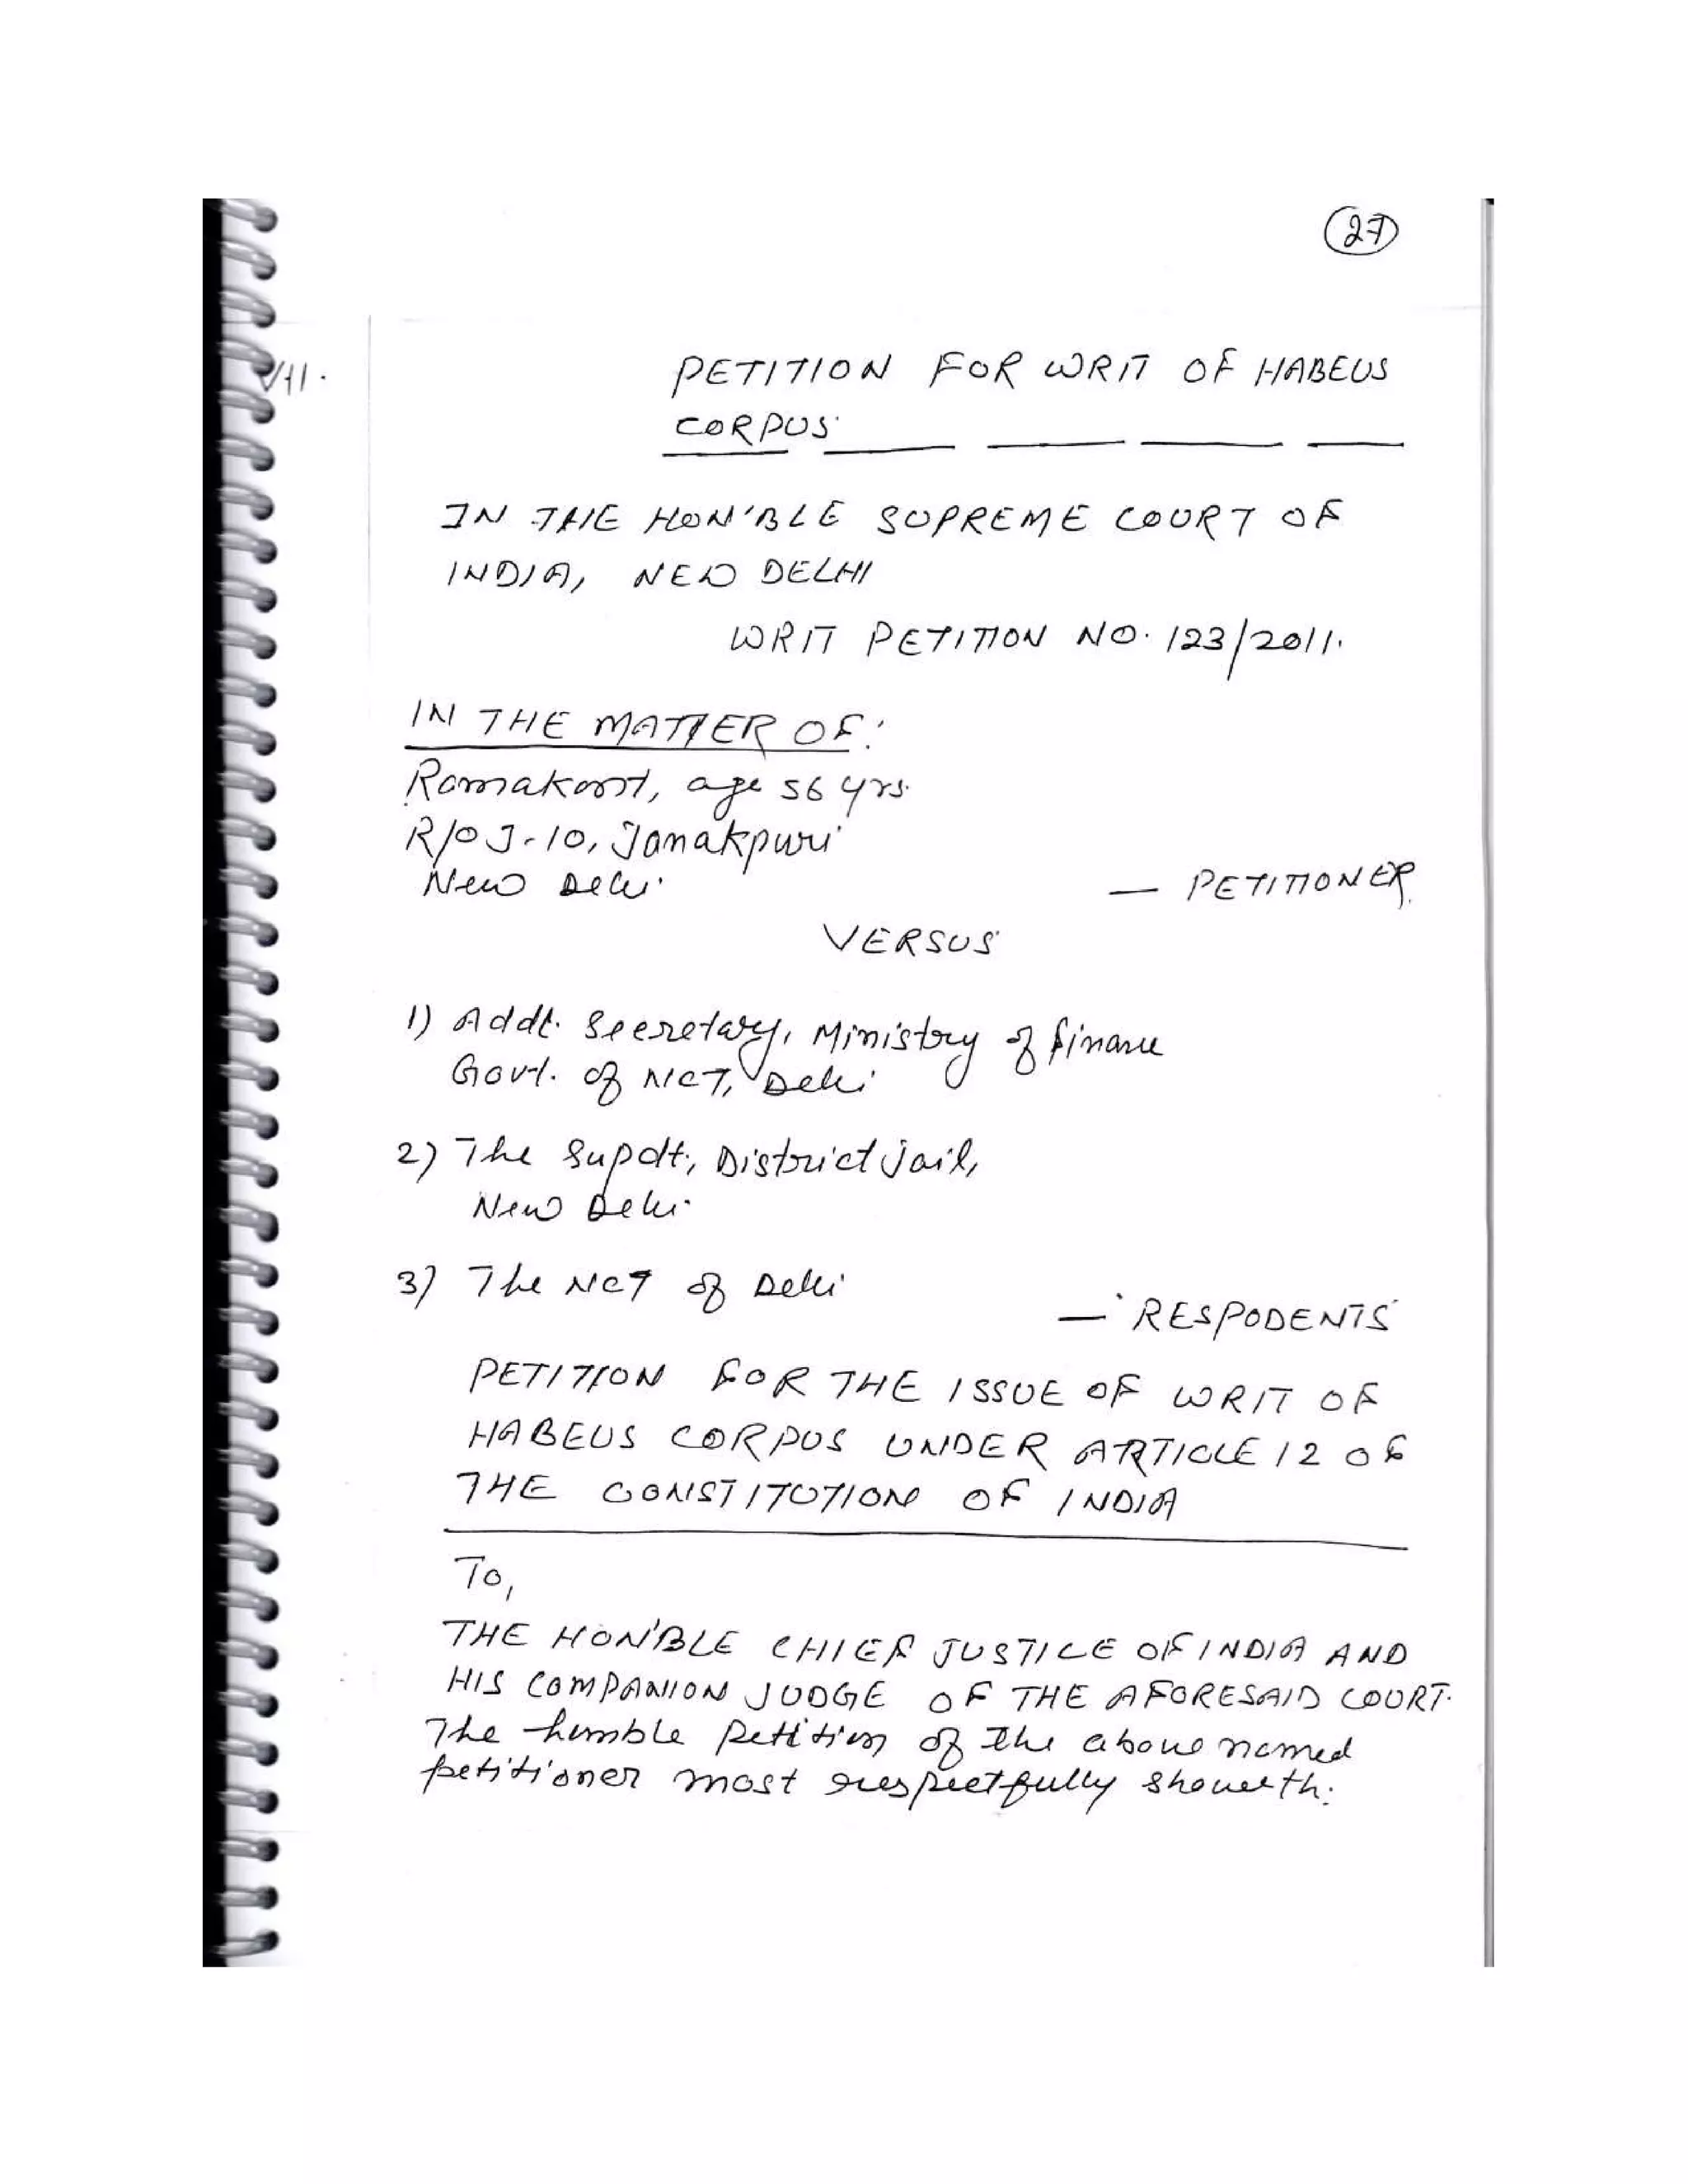 27
VII.
PETITION FOR WRIT OF HABEUS
CORPUS
IN THE HON'BLE SUPREME COURT OF
INDIA, NEW DELHI
WRIT PETITION NO. 123/2011.
IN THE MATTER OF:
Ramakant, age 56 yrs.
R/O J-10, Janakpuri
New Delhi
— PETITIONER.
VERSUS
1) Addl. Secretary, Ministry of finance
Govt. of NCT, Delhi
2) The Supdt, District jail,
New Delhi
3) The NCT of Delhi
— RESPODENTS
PETITION FOR THE ISSUE OF WRIT OF
HABEUS CORPUS UNDER ARTICLE 12 OF
THE CONSTITUTION OF INDIA
To,
THE HON'BLE CHIEF JUSTICE OF INDIA AND
HIS COMPANION JUDGE OF THE AFORESAID COURT.
The humble Petition of the above named
petitioner most respectfully showeth: